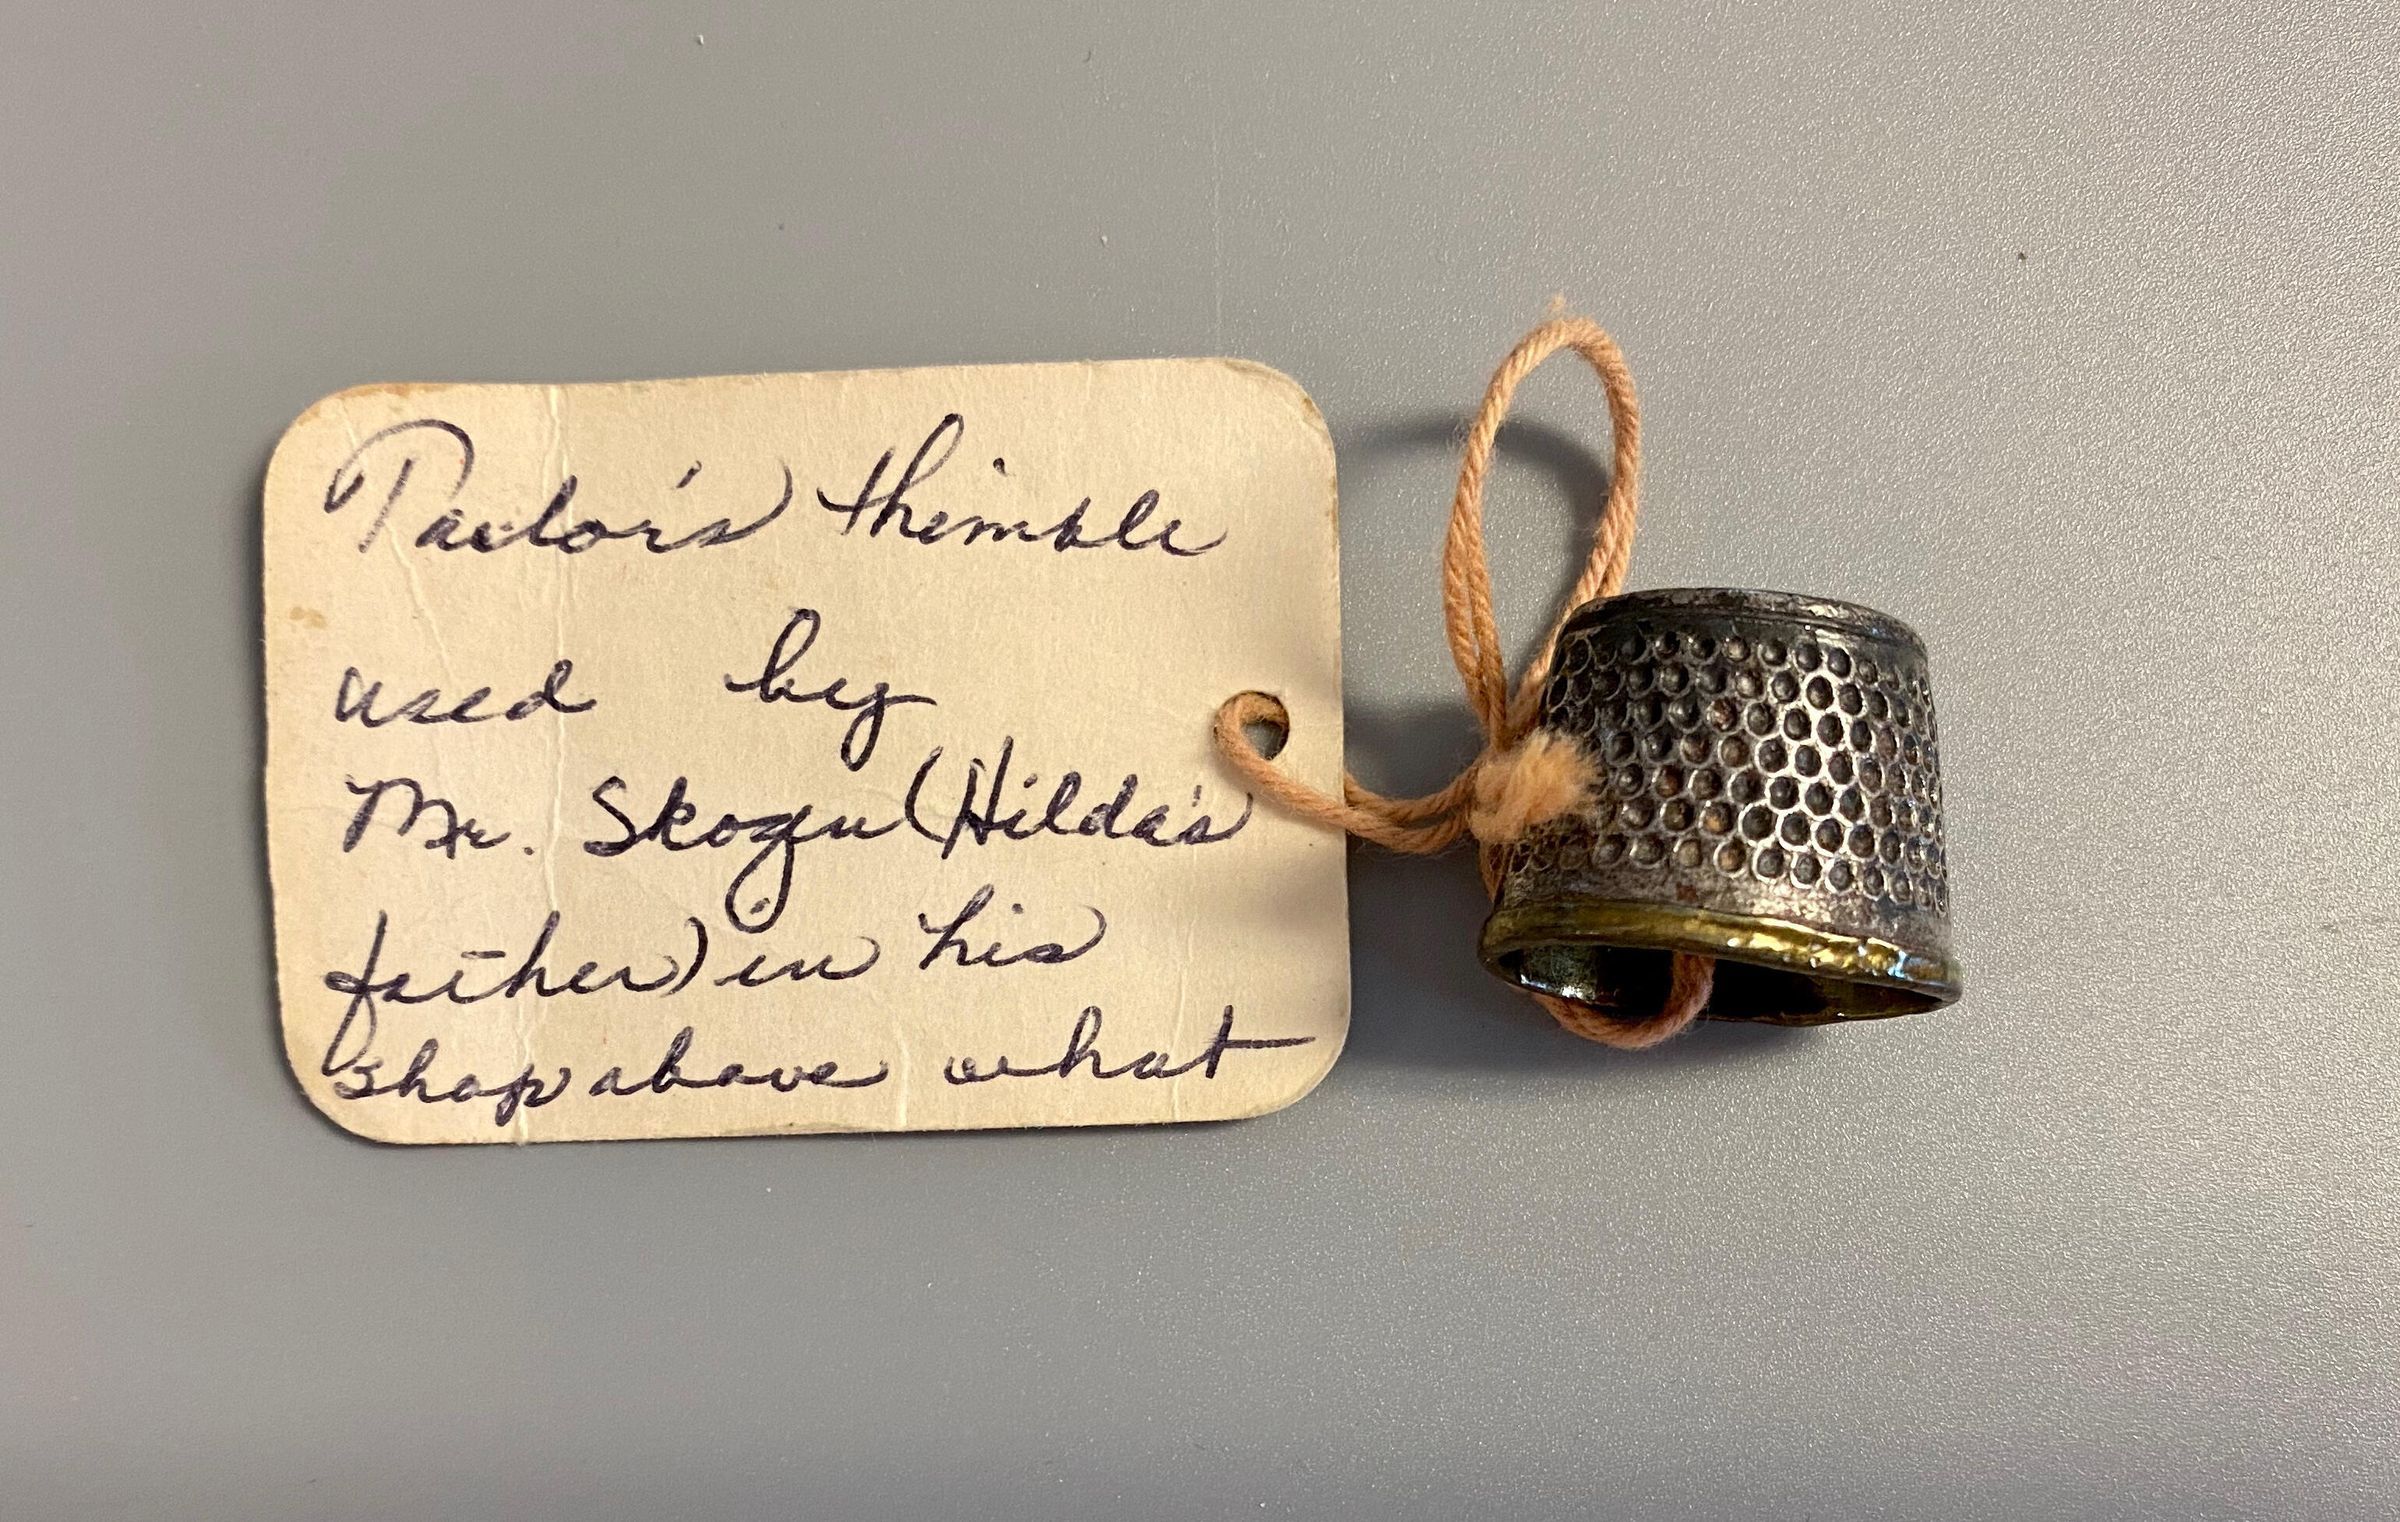 Tailor's thimble
used by
Mr. Skogen (Hilda's
father) in his
shop above what